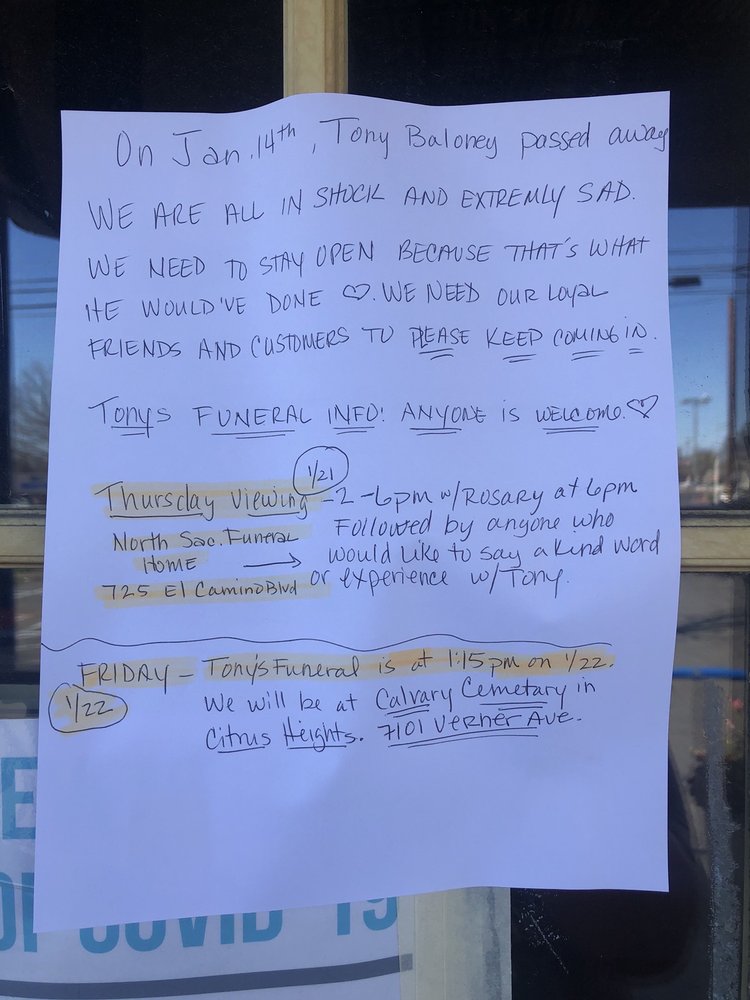 On Jan. 14th, Tony Baloney passed away
WE ARE ALL IN SHOCK AND EXTREMLY SAD.
WE NEED TO STAY OPEN BECAUSE THAT'S WHAT
HE WOULD'VE DONE ♡. WE NEED OUR LOYAL
FRIENDS AND CUSTOMERS TO PLEASE KEEP COMING IN.
TONYS FUNERAL INFO! ANYONE IS WELCOME. ♡
1/21
Thursday Viewing - 2-6pm w/ROSARY at 6pm
North Sac. Funeral Home → Followed by anyone who
would like to say a kind word
725 El Camino Blvd or experience w/Tony.
FRIDAY - Tony's Funeral is at 1:15pm on 1/22.
1/22 We will be at Calvary Cemetary in
Citrus Heights. 7101 Verner Ave.
E
OF COVID 19